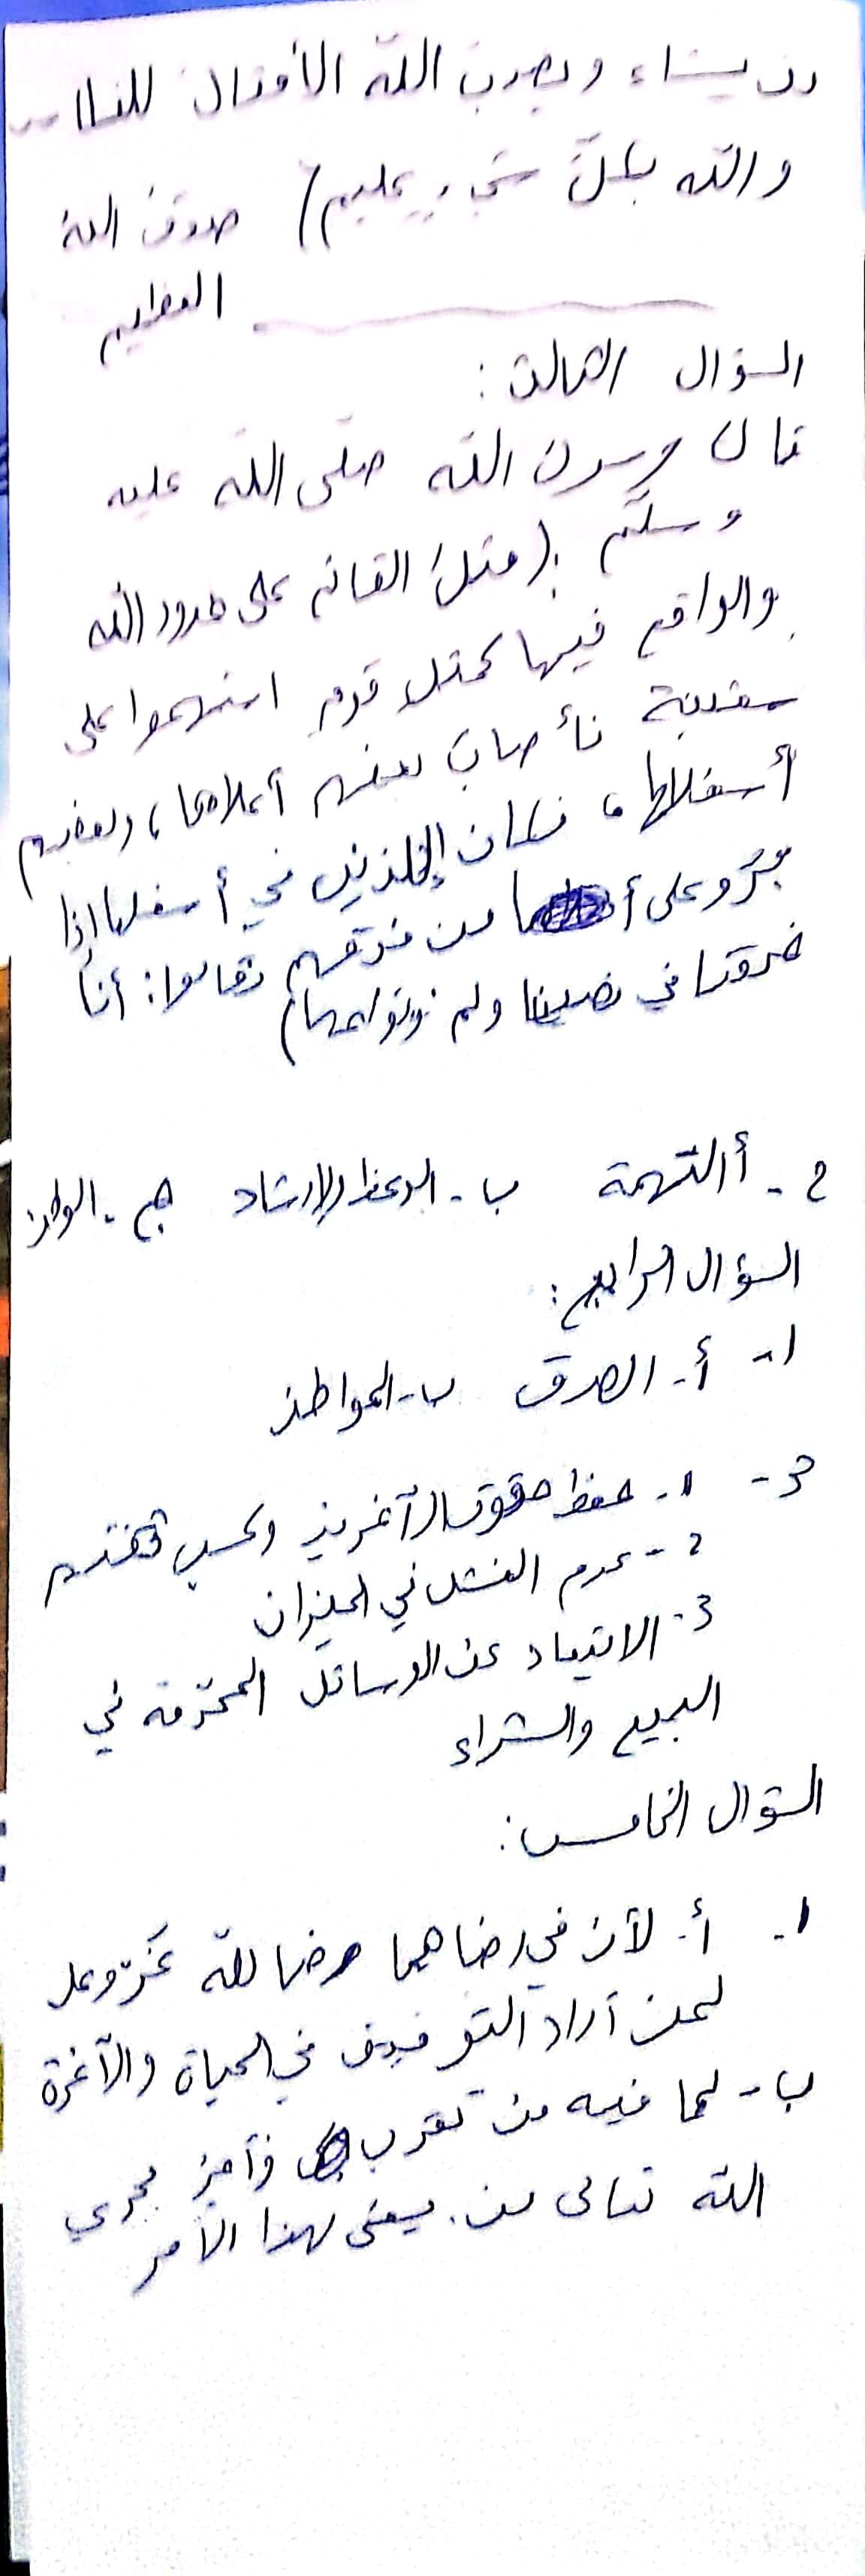 من يشاء ويضرب الله الأمثال للناس
والله بكل شيء عليم) صدق الله
العظيم
السؤال الثالث:
قال رسول الله صلى الله عليه
وسلم: (مثل القائم على حدود الله
والواقع فيها كمثل قوم استهموا على
سفينة فأصاب بعضهم أعلاها، وبعضهم
أسفلها، فكان الذين في أسفلها إذا
على من فوقهم فقالوا: أنا
خرقنا في نصيبنا ولم نؤذ
2 - أ التهمة ب - الوعظ والإرشاد ج -
السؤال الرابع:
1 - أ - الصدق ب - المواطن
3 - 1 - حفظ حقوق الآخرين وكسب ثقتهم
2 - عدم الغش في الميزان
3 - الابتعاد عن الوسائل المحرمة في
البيع والشراء
السؤال الخامس:
1 - أ - لأن في رضاهما رضا لله عز وجل
لمن أراد التوفيق في الحياة والآخرة
ب - لما فيه من تقرب
الله تعالى من يسعى لهذا الأمر